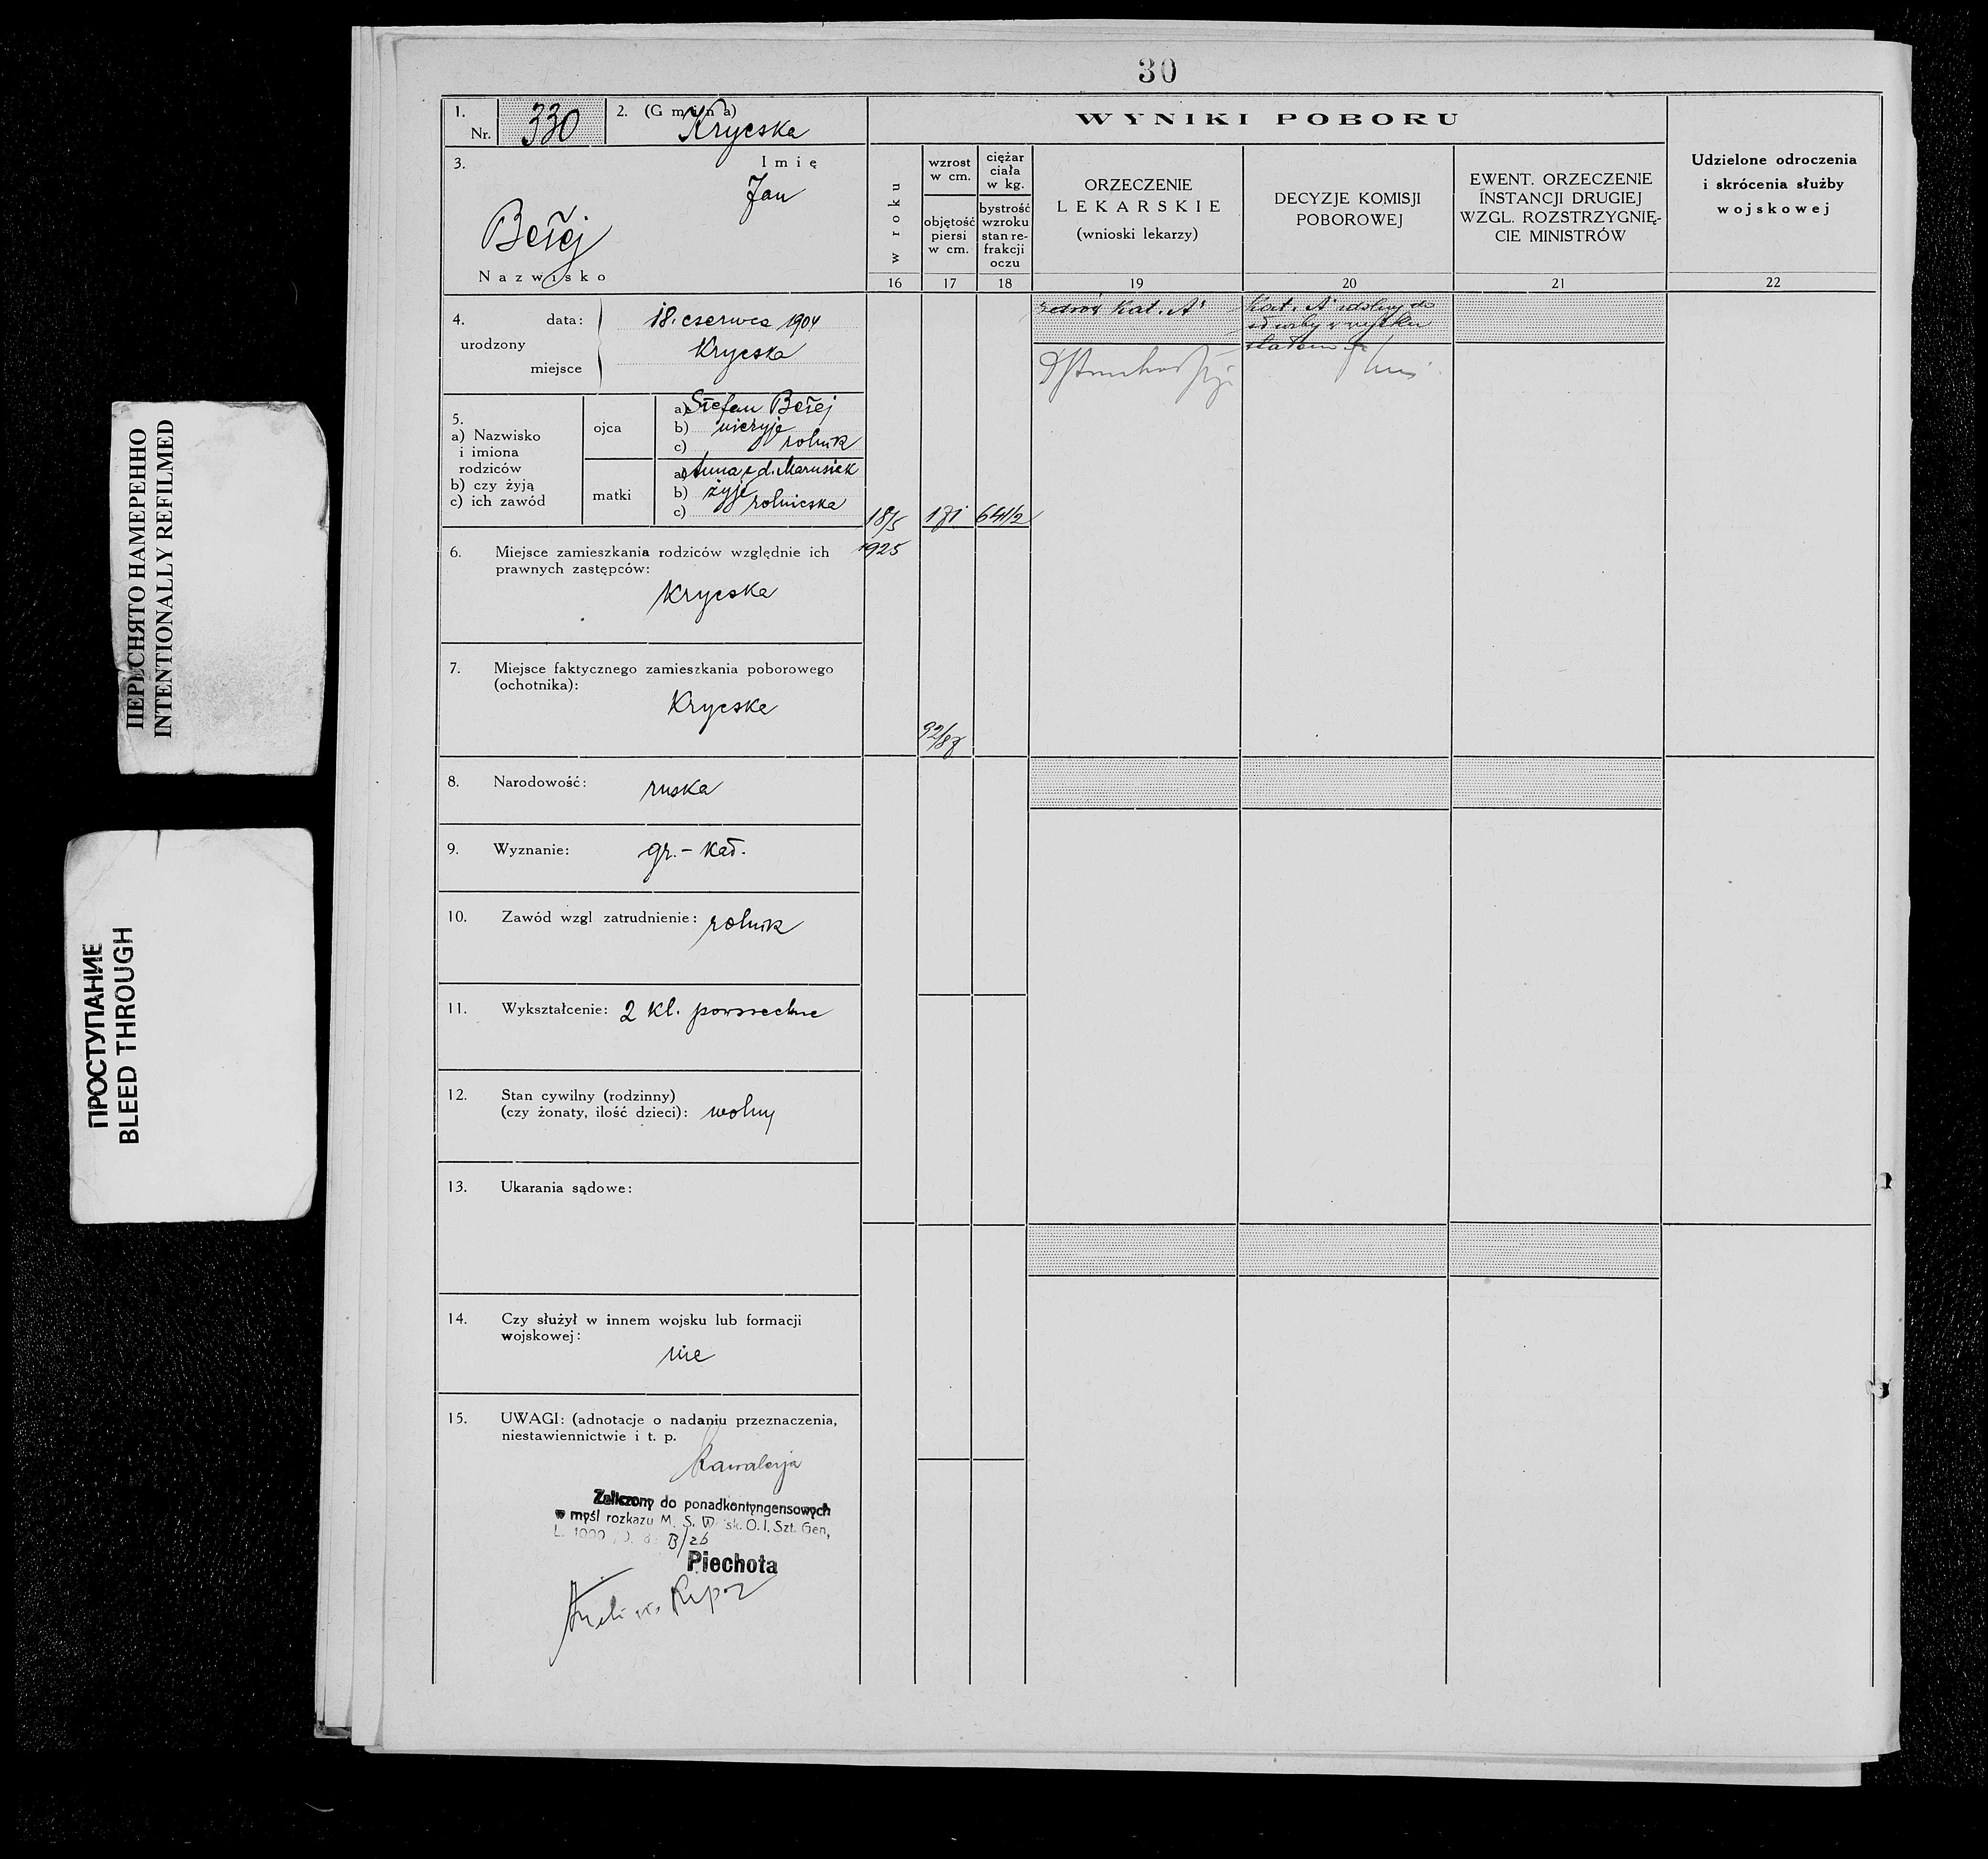 30
1.
Nr. 330
2. (Gmina)
Krycska
3.
Imię
Jan
Bełej
Nazwisko
4.
urodzony
data: 18. czerwca 1904
miejsce Krycska
5.
a) Nazwisko
i imiona
rodziców
b) czy żyją
c) ich zawód
ojca
a) Stefan Bełej
b) nieżyje
c) rolnik
matki
a) Anna z d. Marusiak
b) żyje
c) rolniczka
6. Miejsce zamieszkania rodziców względnie ich
prawnych zastępców:
Krycska
7. Miejsce faktycznego zamieszkania poborowego
(ochotnika):
Krycska
8. Narodowość: ruska
9. Wyznanie: gr.-kat.
10. Zawód wzgl zatrudnienie: rolnik
11. Wykształcenie: 2 kl. powszechne
12. Stan cywilny (rodzinny)
(czy żonaty, ilość dzieci): wolny
13. Ukarania sądowe:
14. Czy służył w innem wojsku lub formacji
wojskowej:
nie
15. UWAGI: (adnotacje o nadaniu przeznaczenia,
niestawiennictwie i t. p.
Kawalerja
Zaliczony do ponadkontyngensowych
w myśl rozkazu M. S. Wojsk. O. I. Szt. Gen,
L. 1000 B/26
Piechota
WYNIKI POBORU
w roku
16
wzrost
w cm.
objętość
piersi
w cm.
17
ciężar
ciała
w kg.
bystrość
wzroku
stan re-
frakcji
oczu
18
ORZECZENIE
LEKARSKIE
(wnioski lekarzy)
19
DECYZJE KOMISJI
POBOROWEJ
20
EWENT. ORZECZENIE
INSTANCJI DRUGIEJ
WZGL. ROZSTRZYGNIĘ-
CIE MINISTRÓW
21
Udzielone odroczenia
i skrócenia służby
wojskowej
22
18/5
1925
171
64 1/2
92/87
zdrów Kat. A
Kat. A zdolny do
służby w wojsku
stałem
ПЕРЕСНЯТО НАМЕРЕННО
INTENTIONALLY REFILMED
ПРОСТУПАНИЕ
BLEED THROUGH